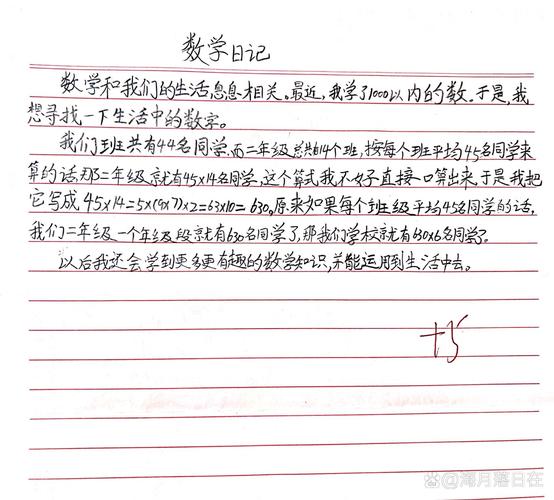 数学日记
数学和我们的生活息息相关。最近，我学了1000以内的数，于是，我
想寻找一下生活中的数字。
我们班共有44名同学，而二年级总共有14个班，按每个班平均45名同学来
算的话，那二年级就有45×14名同学，这个算式我不好直接口算出来，于是我把
它写成45×14=5×(9×7)×2=63×10=630。原来如果每个班级平均45名同学的话，
我们二年级一个年级段就有630名同学了，那我们学校就有630×6名同学了。
以后我还会学到更多更有趣的数学知识，并能运用到生活中去。
@海月落日在